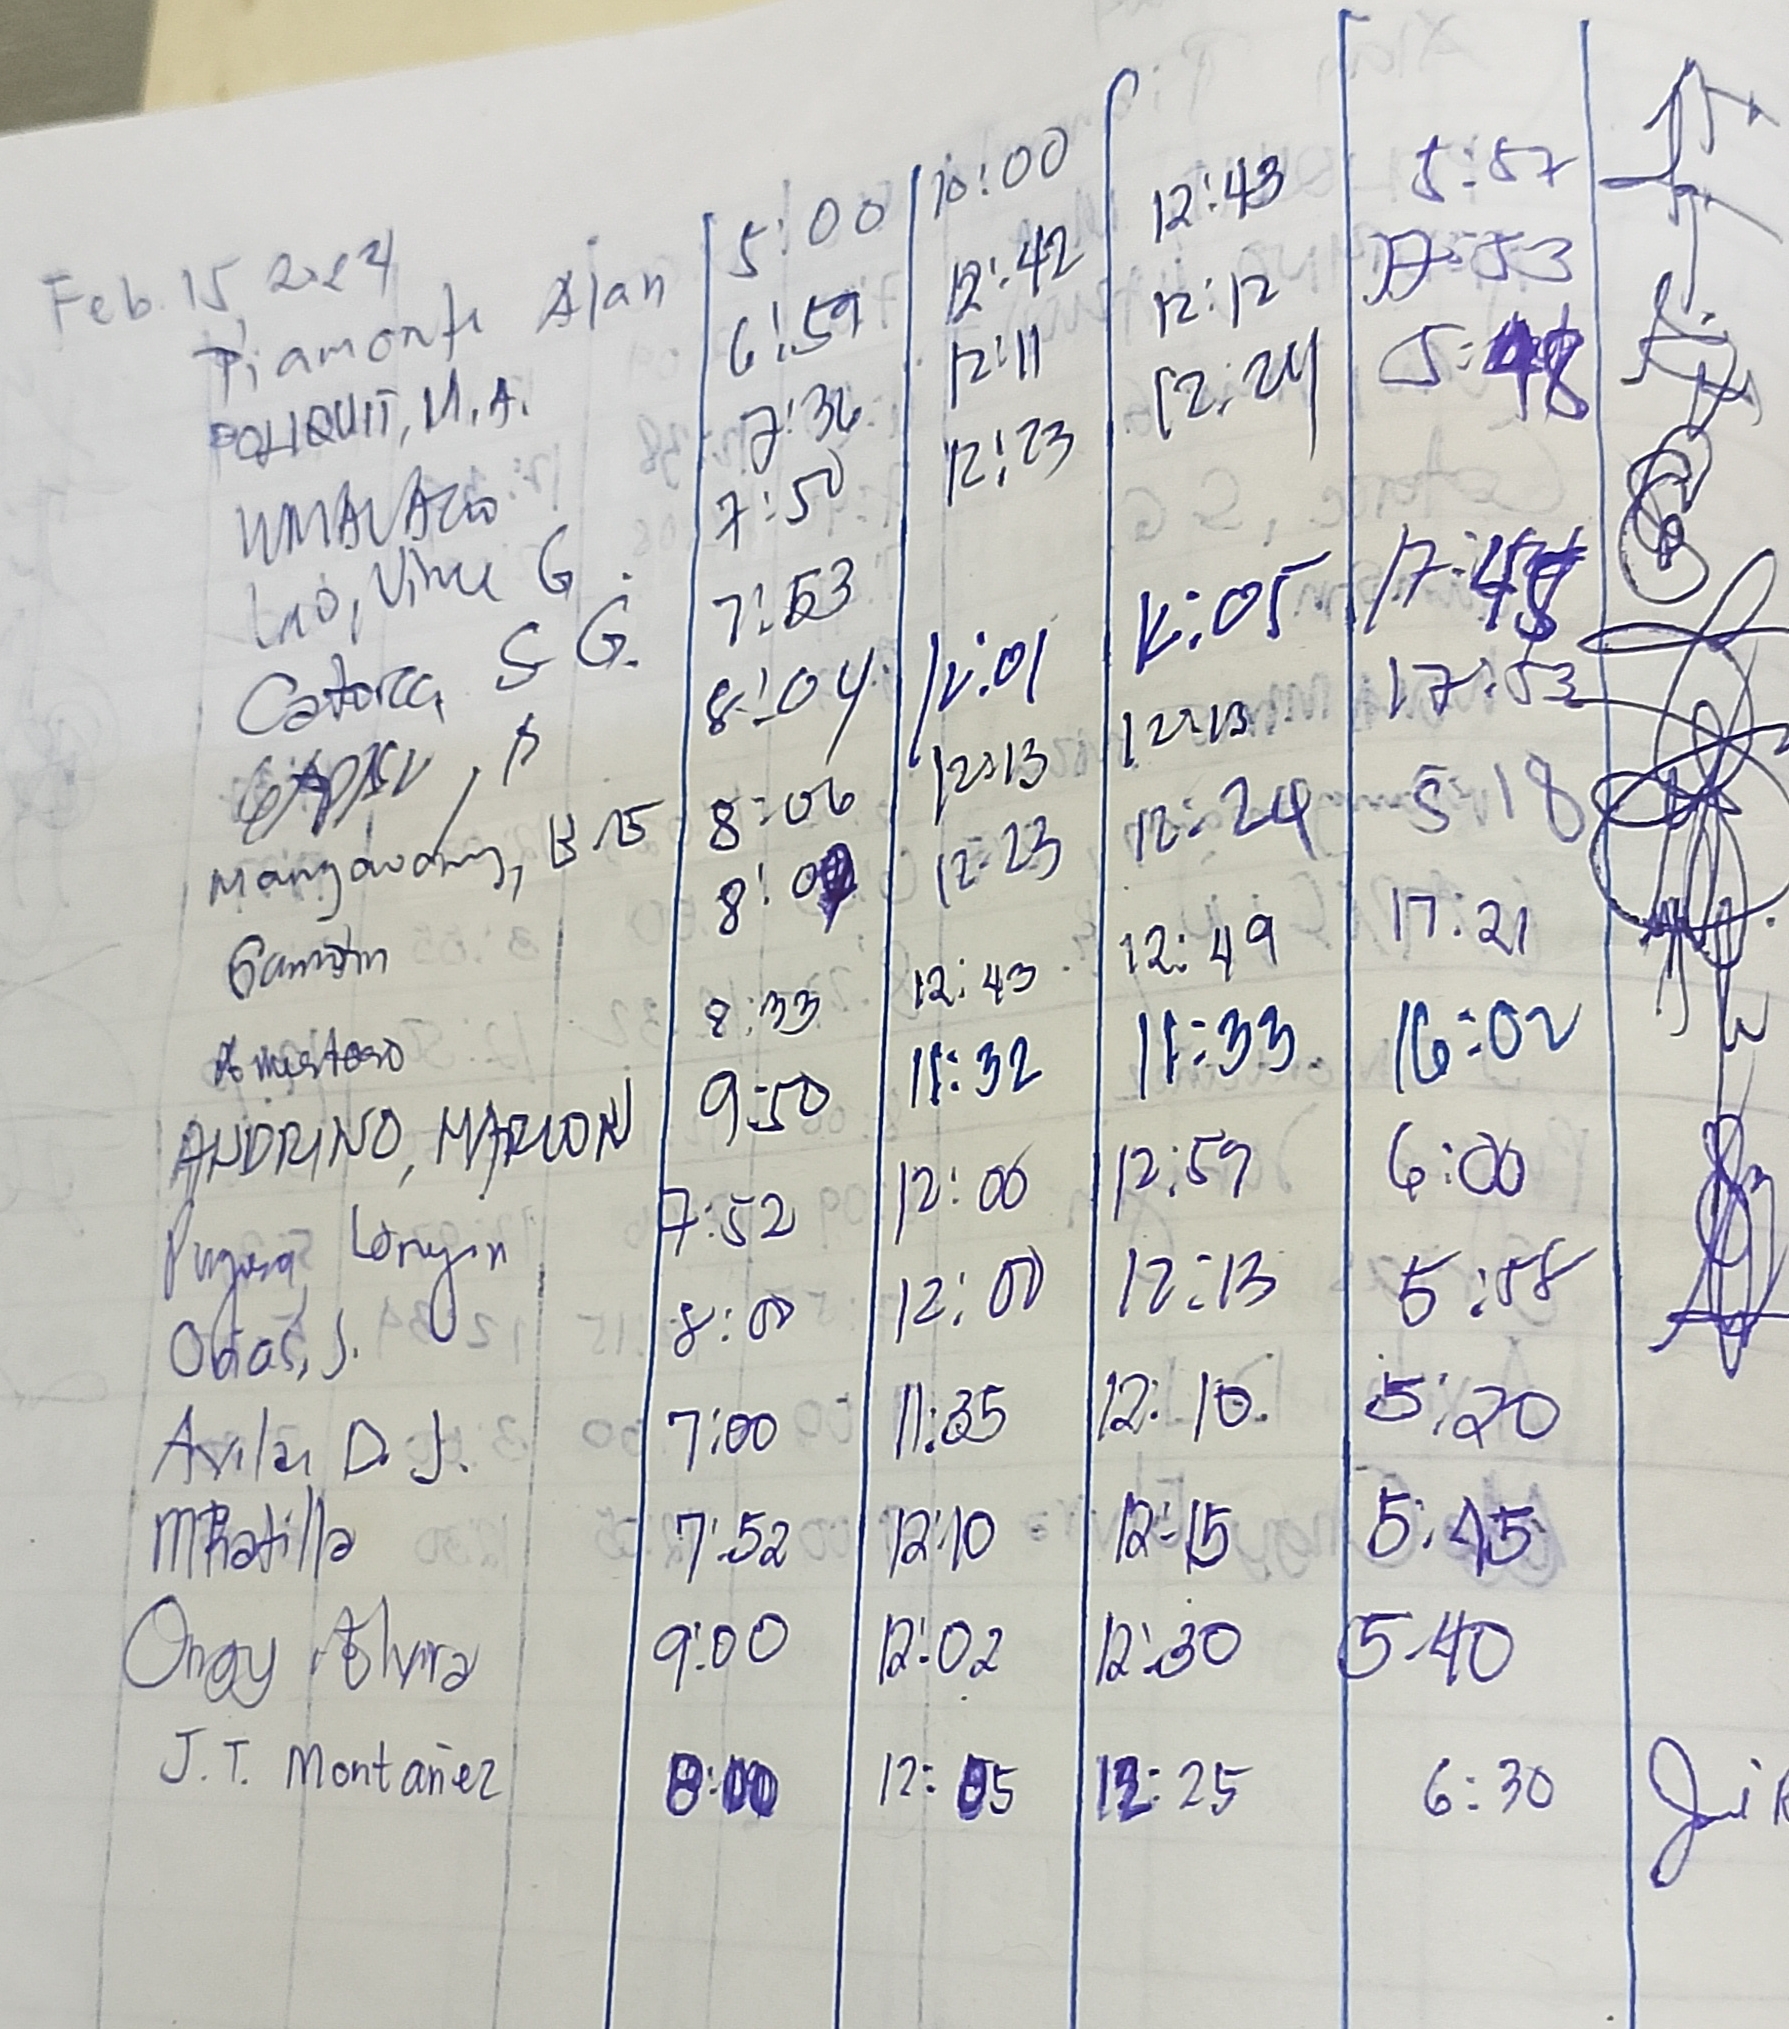 Feb. 15 2024
Piamonte Alan 5:00 10:00
POLIQUIT, M.A. 6:59 12:42 12:43 5:57
UMALI 7:36 12:11 12:12 17:53
Vince G. 7:50 12:23 12:24 5:48
Catorce, S G. 7:53
8:04 12:01 12:05 17:48
Mangawang, B 8:06 12:13 12:13 17:53
Gamotin 8:09 12:23 12:24 5:18
8:33 12:43 12:49 17:21
ANDRINO, MARLON 9:50 11:32 11:33 16:02
Longin 7:52 12:00 12:59 6:00
Obias, J. 8:00 12:00 12:13 5:58
Avila, D. J. 7:00 11:35 12:10 5:20
MRatilla 7:52 12:10 12:15 5:45
Ongy Elvira 9:00 12:02 12:30 5:40
J.T. Montañez 8:00 12:05 12:25 6:30